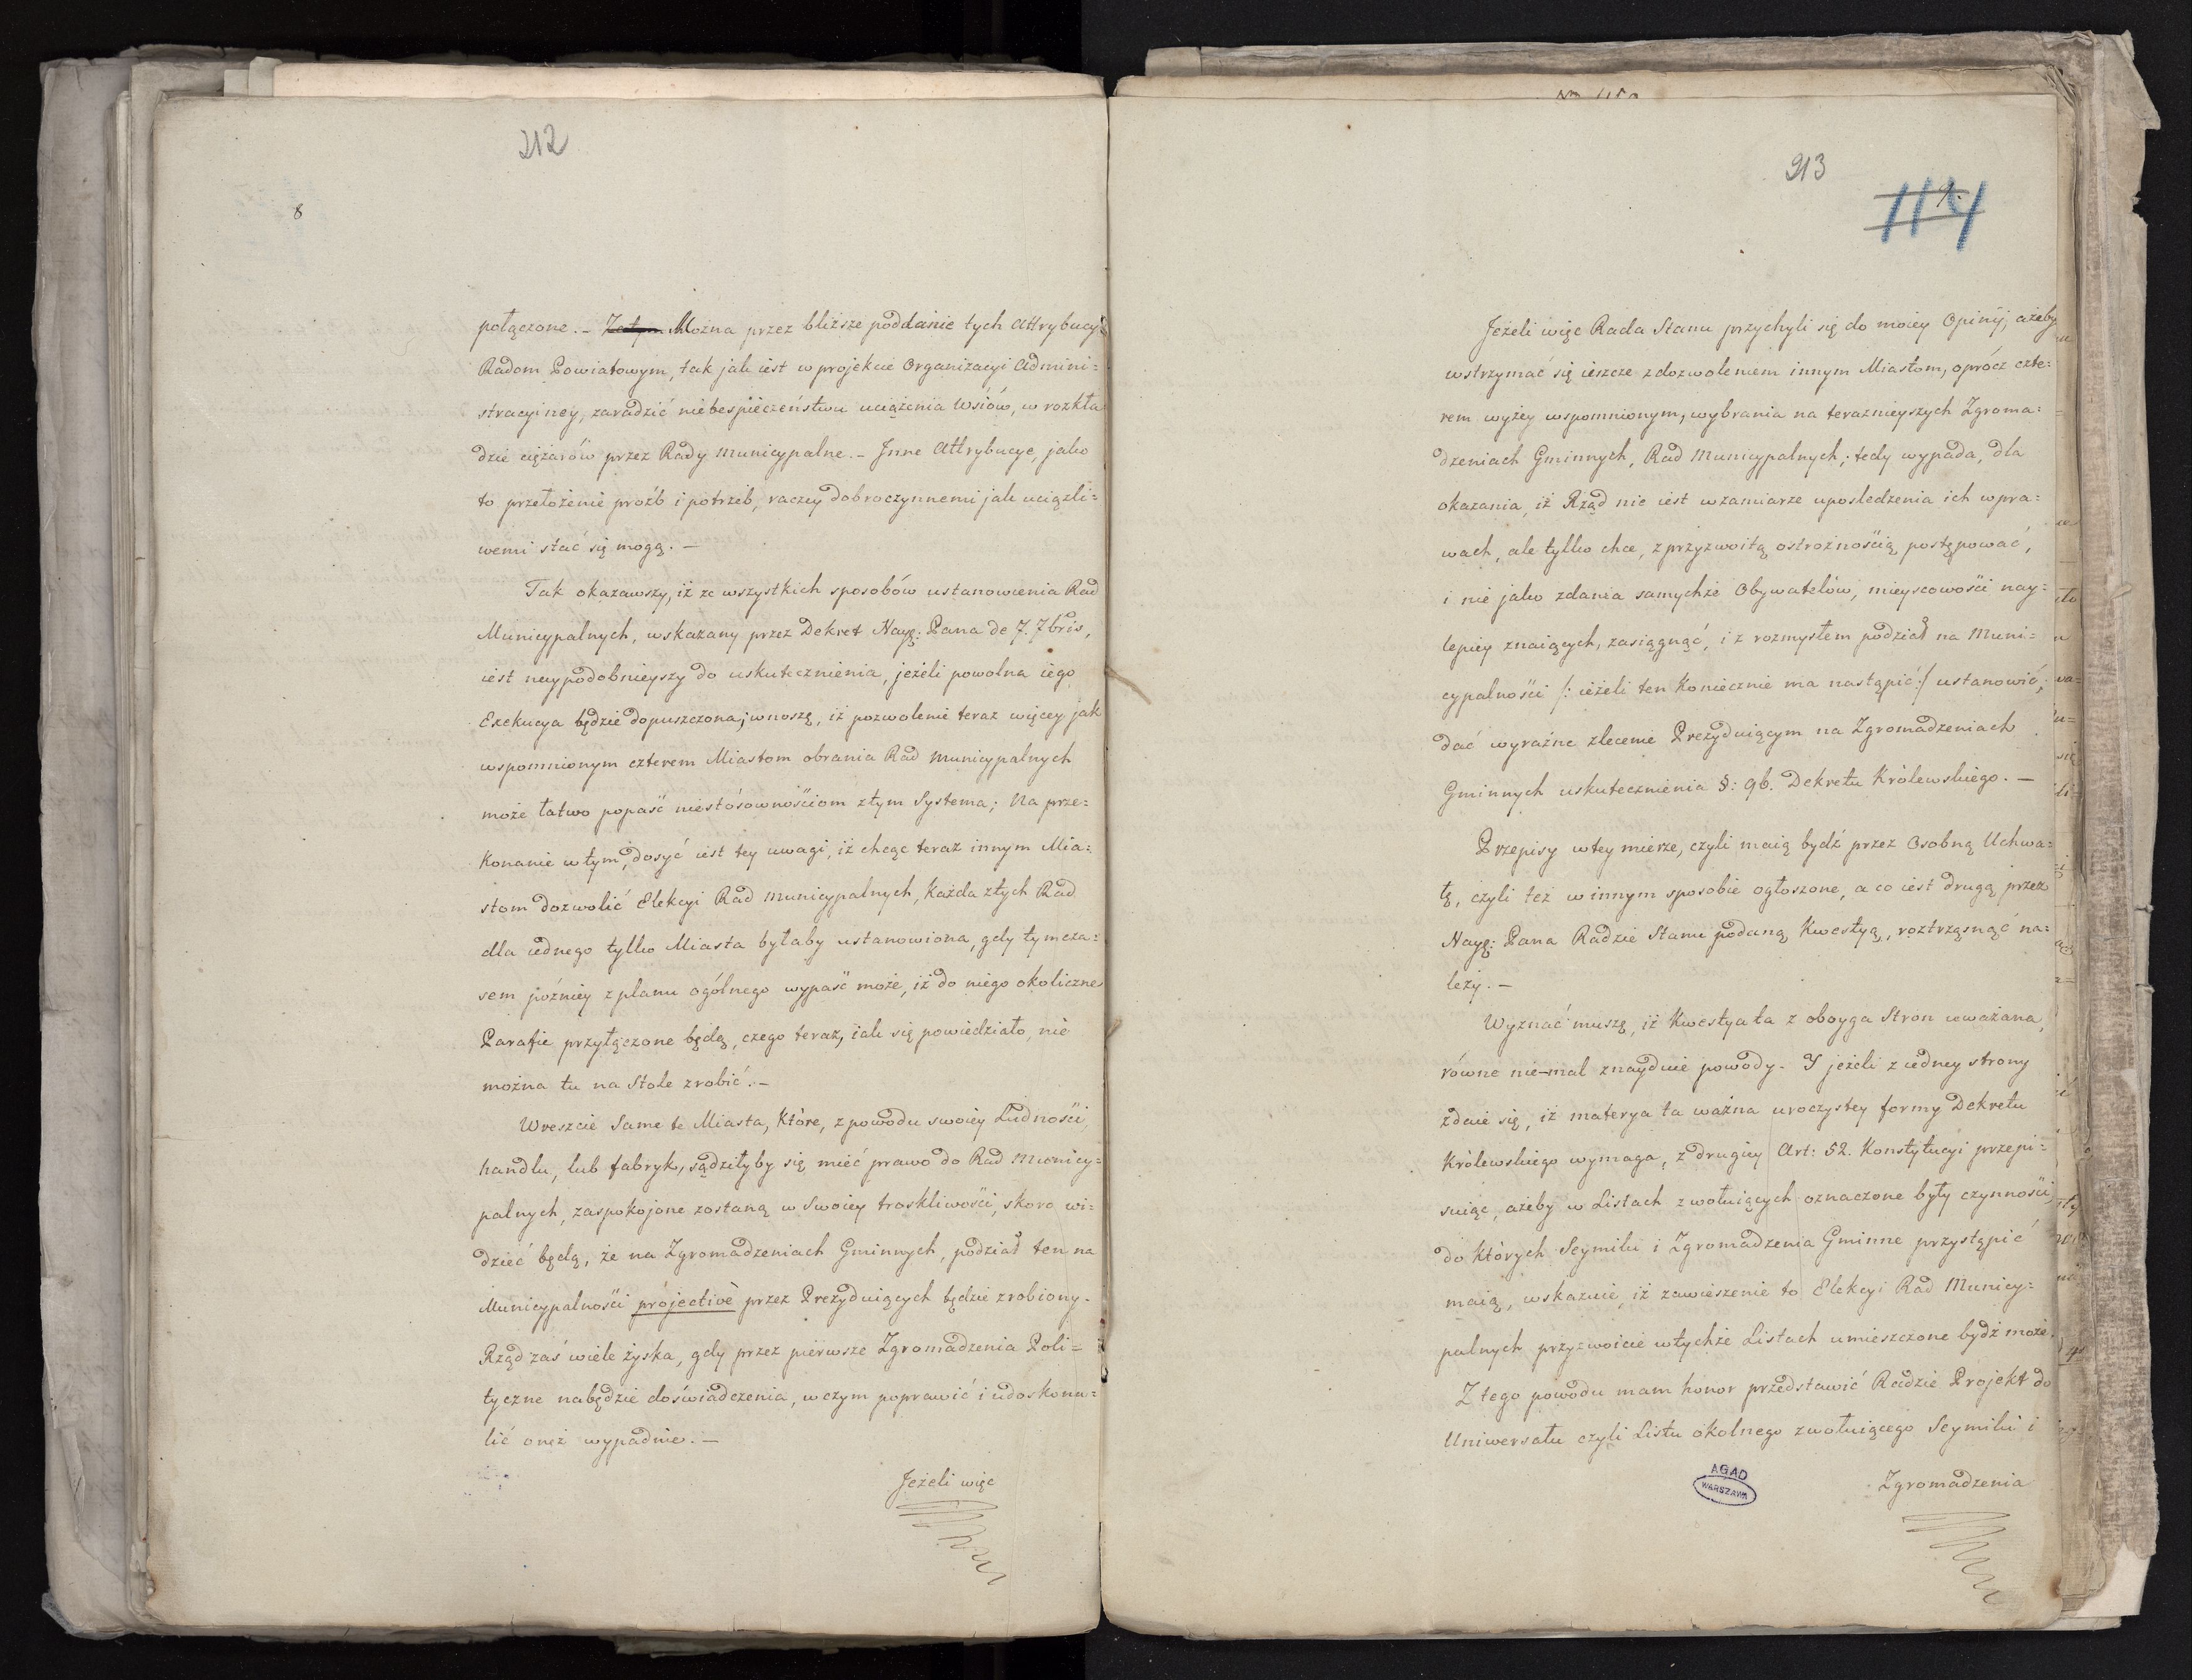 212
8
połączone. – Zatym Można przez bliższe poddanie tych Attrybucyi
Radom Powiatowym, tak jak iest w projekcie Organizacyi Admini=
stracyiney, zaradzić niebespieczeństwu uciążenia Wsiów, w rozkła
dzie ciężarów przez Rady Municypalne. – Inne Attrybucye, jako
to przełożenie próźb i potrzeb, raczey dobroczynnemi jak uciążli=
wemi stać się mogą. –
Tak okazawszy, iż ze wszystkich sposobów ustanowienia Rad
Municypalnych, wskazany przez Dekret Nayę: Pana de 7. 7bris,
iest naypodobnieyszy do uskutecznienia, jeżeli powolna iego
Exekucya będzie dopuszczona; wnoszę, iż pozwolenie teraz więcey jak
wspomnionym czterem Miastom obrania Rad Municypalnych
może łatwo popaść niestósownościom z tym Systema; Na prze=
konanie w tym, dosyć iest tey uwagi, iż chcąc teraz innym Mia=
stom dozwolić Elekcyi Rad Municypalnych, każda z tych Rad
dla iednego tylko Miasta byłaby ustanowiona, gdy tymcza=
sem poźniey z planu ogólnego wypaść może, iż do niego okoliczne
Parafie przyłączone będą, czego teraz, iak się powiedziało, nie
można tu na Stole zrobić. –
Wreszcie Same te Miasta, które, z powodu swoiey Ludności,
handlu, lub fabryk, sądziłyby się mieć prawo do Rad Municy=
palnych, zaspokojone zostaną w Swoiey troskliwości, skoro wi=
dzieć będą, że na Zgromadzeniach Gminnych, podział ten na
Municypalności projectivè przez Prezyduiących będzie zrobiony.
Rząd zaś wiele zyska, gdy przez pierwsze Zgromadzenia Poli=
tyczne nabędzie doświadczenia, w czym poprawić i udoskona=
lić oneż wypadnie. –
Jeżeli więc
213
114
9.
Jeżeli więc Rada Stanu przychyli się do moiey Opinij, ażeby
wstrzymać się ieszcze z dozwoleniem innym Miastom, oprócz czte=
rem wyżey wspomnionym, wybrania na teraznieyszych Zgroma=
dzeniach Gminnych, Rad Municypalnych; tedy wypada, dla
okazania, iż Rząd nie iest w zamiarze upośledzenia ich w pra=
wach, ale tylko chce, z przyzwoitą ostrożnością postępować,
i nie jako zdania samychże Obywatelów, mieyscowości nay=
lepiey znaiących, zasiągnąć, i z rozmysłem podział na Muni=
cypalności /: ieżeli ten koniecznie ma nastąpić :/ ustanowić;
dać wyraźne zlecenie Prezyduiącym na Zgromadzeniach
Gminnych uskutecznienia §: 96. Dekretu Królewskiego. –
Przepisy w tey mierze, czyli maią bydź przez Osobną Uchwa=
łę, czyli też w innym sposobie ogłoszone, a co iest drugą przez
Nayę: Pana Radzie Stanu podaną Kwestyą, roztrząsnąć na=
leży. –
Wyznać muszę, iż Kwestya ta z oboyga Stron uważana,
równe nie–mal znayduie powody. Y jeżeli z iedney strony
zdaie się, iż materya ta ważna uroczystey formy Dekretu
Królewskiego wymaga, z drugiey Art: 52. Konstytucyi przepi=
suiąc, ażeby w Listach zwołuiących oznaczone były czynności,
do których Seymiki i Zgromadzenia Gminne przystąpić
maią, wskazuie, iż zawieszenie to Elekcyi Rad Municy=
palnych przyzwoicie w tychże Listach umieszczone bydź może.
Z tego powodu mam honor przedstawić Radzie Projekt do
Uniwersału czyli Listu okolnego zwołuiącego Seymiki i
AGAD
WARSZAWA
Zgromadzenia